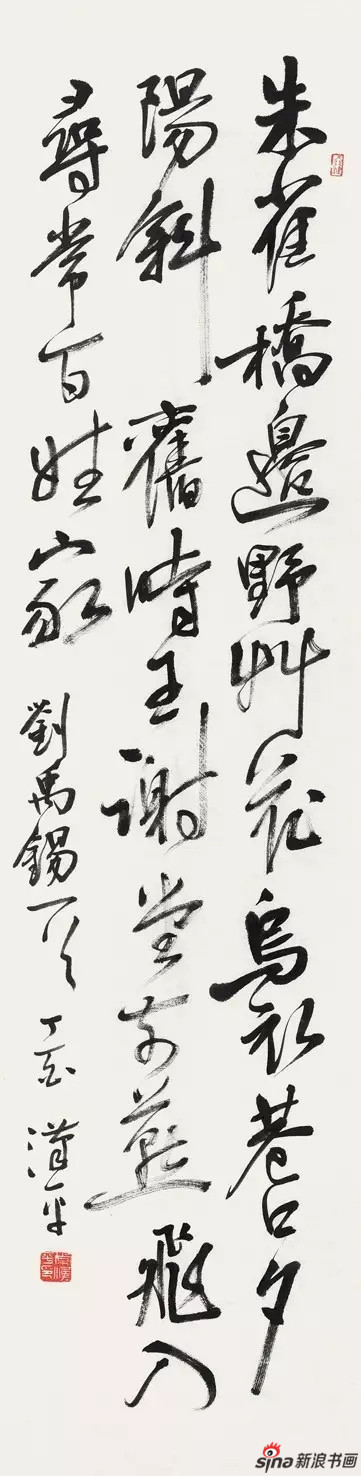 朱雀橋邊野艸花烏衣巷口夕
陽斜舊時王謝堂前燕飛入
尋常百姓家 劉禹錫一首 丁酉 漢平
sina新浪书画